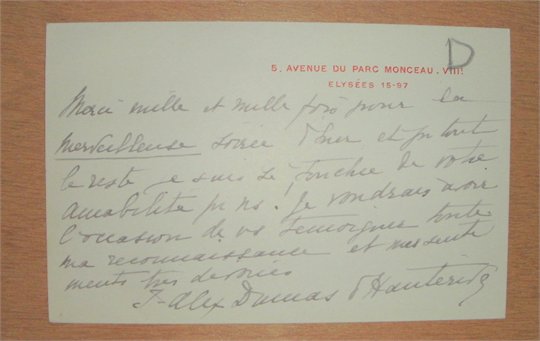 D
5, AVENUE DU PARC MONCEAU. VIII!
ELYSÉES 15-97
Merci mille et mille fois pour la
merveilleuse soirée d'hier et pr tout
le reste je suis si touchée de votre
amabilité pr ns. Je voudrais avoir
l'occasion de vs témoigner toute
ma reconnaissance et mes senti
ments très dévoués
J. Alex Dumas d'Hauterive